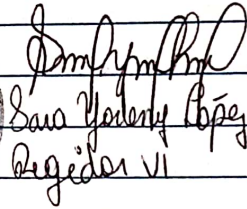 Sara Yorleny López
Regidor VI